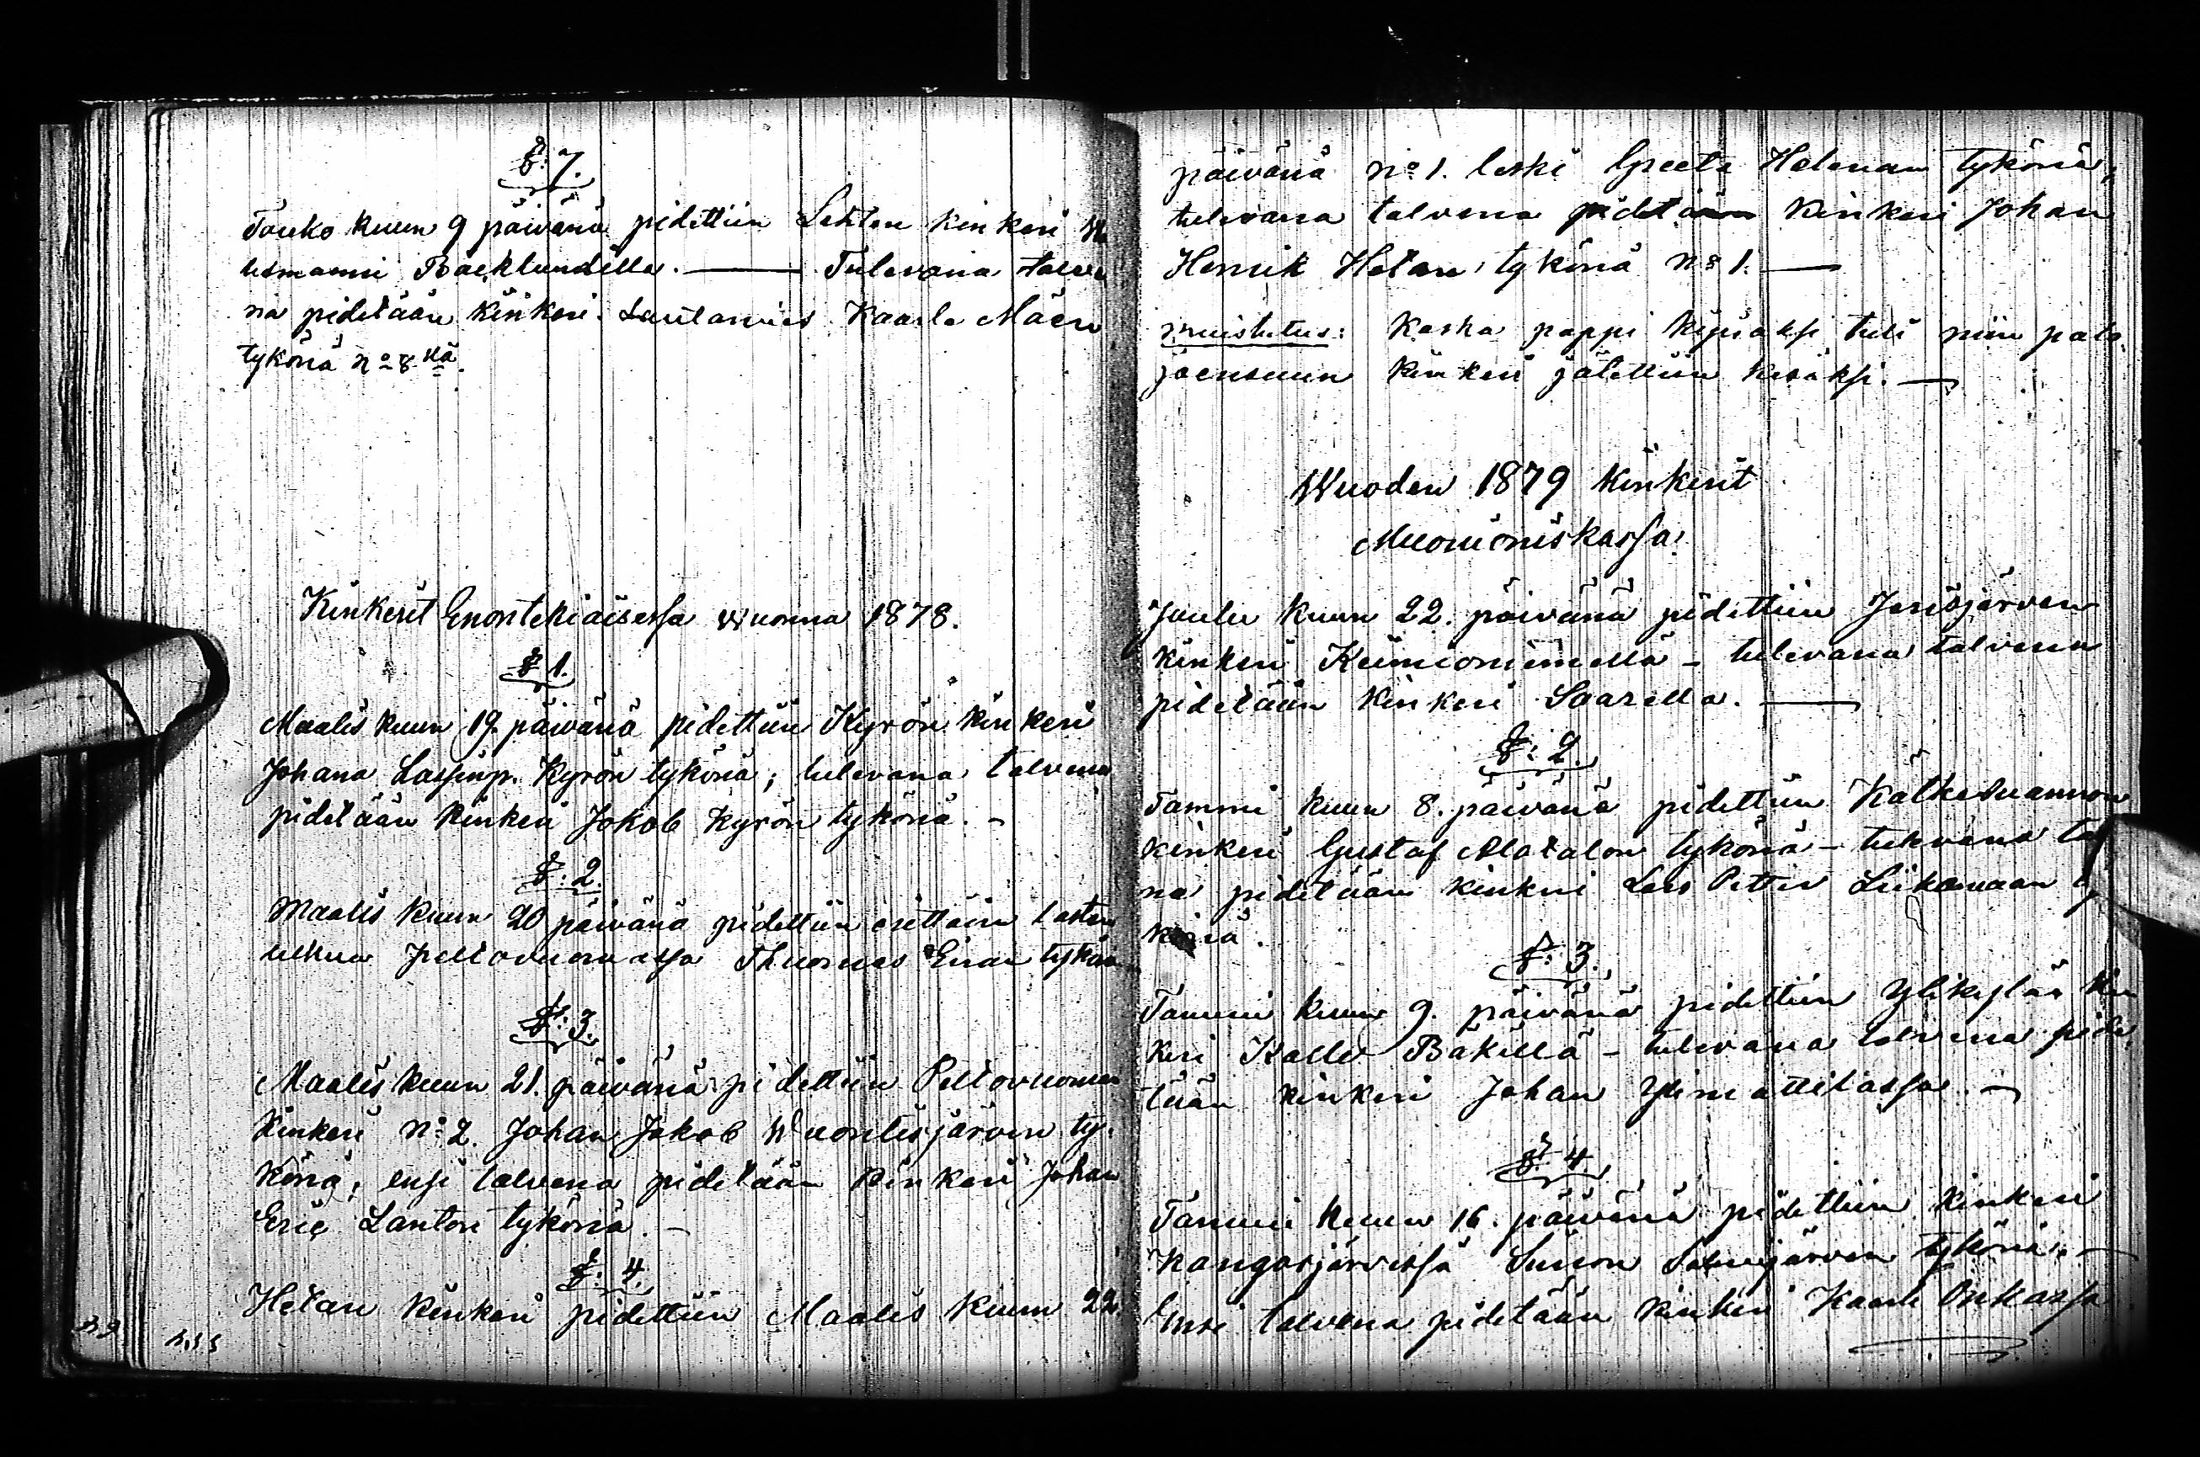 §: 7.
Touko kuun 9 päivänä pidettiin Lehton kinkeri
Backlundilla. — Tulevana talve
na pidetään kinkeri Lautamies Kaarle Mäen
tykönä No 8 ssa.
Kinkerit Enontekiäisessä wuonna 1878.
§ 1.
Maalis kuun 19. päivänä pidettiin Kyrön kinkeri
Johana Kyrön tykönä; tulevana talvena
pidetään kinkeri Jakob Kyrön tykönä. -
§: 2.
Maalis kuun 20 päivänä pidettiin erittäin lasten
lukua Peltovuomassa Thuomas Eiran tykön
§: 3.
Maalis kuun 21. päivänä pidettiin Peltovuoman
Kinkeri No 2. Johan Jakob Wuontisjärven ty-
könä; ensi talvena pidetään kinkeri Johan
Eric Lanton tykönä. -
§: 4.
Hetan kinkeri pidettiin Maalis kuun 22.
päivänä No 1. leski Greeta Helenan tykönä,
tulevana talvena pidetään kinkeri Johan
Henrik Hetan tykönä No 1. —
muistutus: Koska pappi kipiäksi tuli niin palo-
joensuun kinkeri jätettiin kesäksi. —
Wuoden 1879 kinkerit
Muonioniskassa.
Joulu kuun 22. päivänä pidettiin Jerisjärven
kinkeri Keimioniemellä - tulevana talvena
pidetään kinkeri Saarella. —
§: 2.
Tammi kuun 8. päivänä pidettiin Kätkesuannon
kinkeri Gustaf Alatalon tykönä - tulevana tal
na pidetään kinkeri Lars Petter Liikamaan ty
könä.
§: 3.
Tammi kuun 9. päivänä pidettiin Ylikylän kin
keri Kalle Bäkillä - tulevana talvena pide-
tään kinkeri Johan Ylimattilassa. -
§: 4.
Tammi kuun 16. päivänä pidettiin kinkeri
Kangosjärvessä Simon Salmijärven tykönä. —
Ensi talvena pidetään kinkeri Kaarle Onkassa